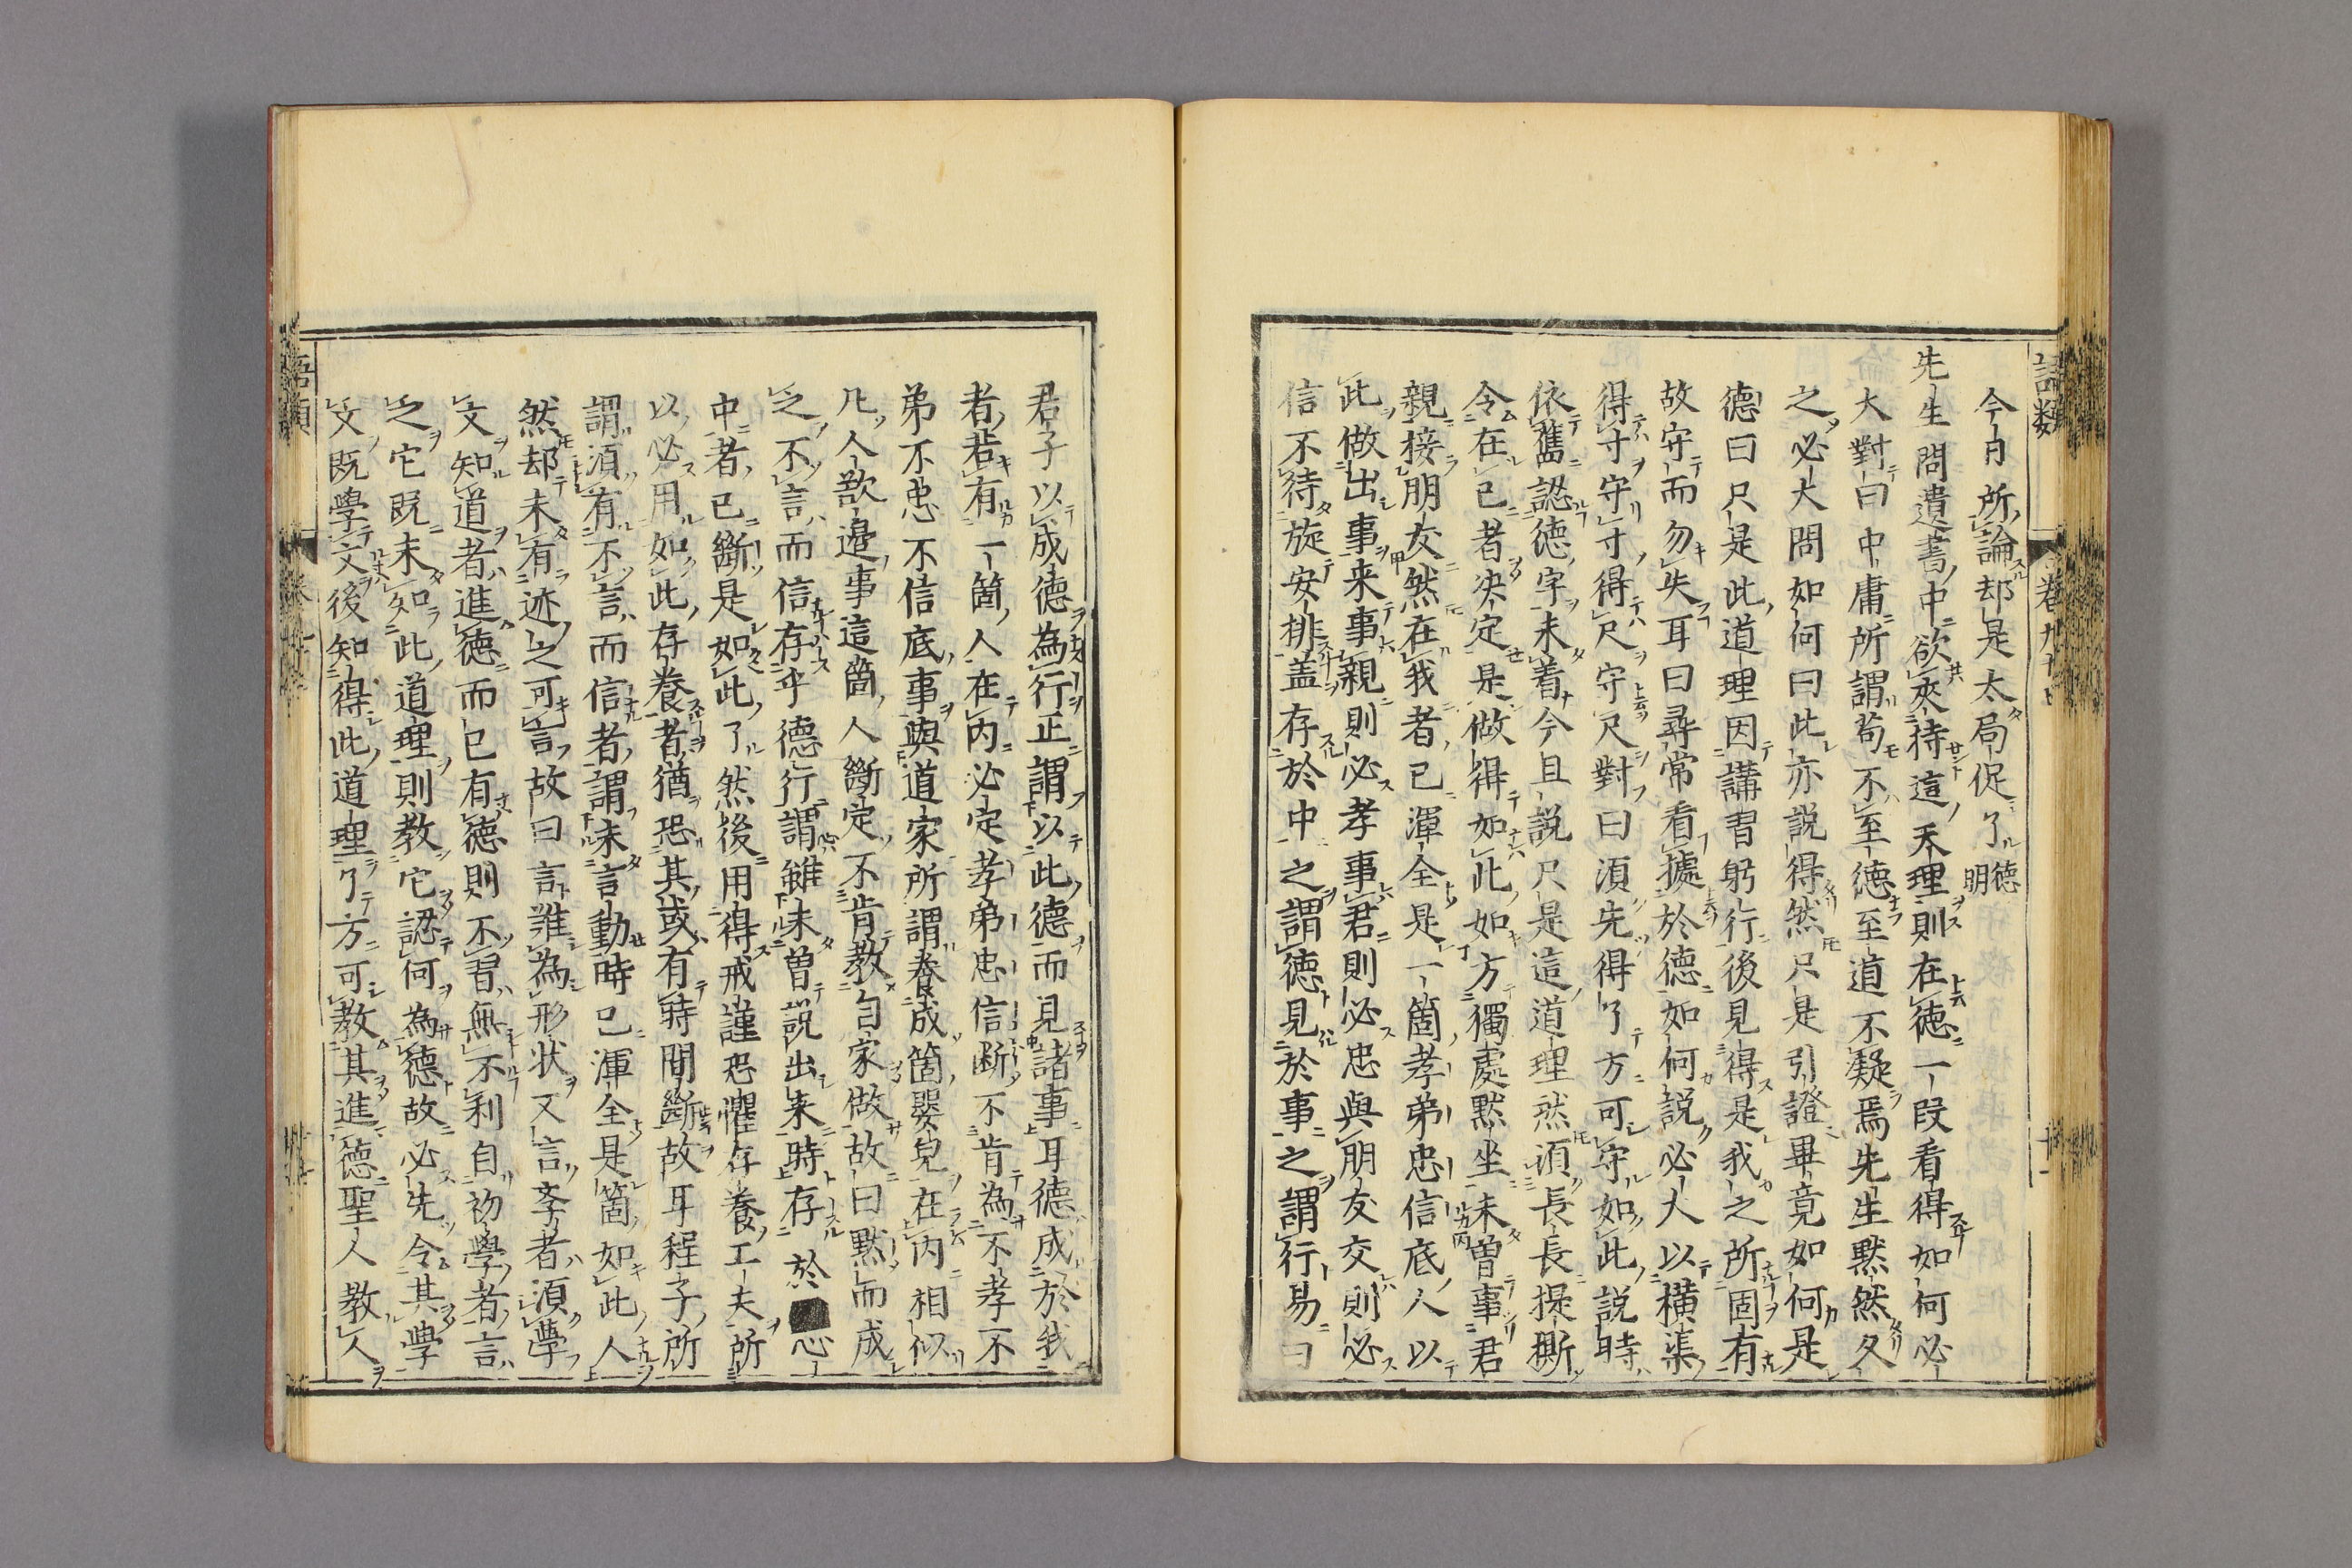 語類
卷九十
今日所論却是太局促了德明
先生問遺書中欲夾持這天理則在德一段看得如何必
大對曰中庸所謂苟不至德至道不凝焉先生默然久
之必大問如何曰此亦說得然只是引證畢竟如何是
德曰只是此道理因講習躬行後見得是我之所固有
故守而勿失耳曰尋常看據於德如何說必大以橫渠
得寸守寸得尺守尺對曰須先得了方可守如此說時
依舊認德字未着今且說只是這道理然須長長提撕
令在己者決定是做得如此如方獨處默坐未曾事君
親接朋友然在我者已渾全是一箇孝弟忠信底人以
此做出事来事親則必孝事君則必忠與朋友交則必
信不待旋安排盖存於中之謂德見於事之謂行易曰
君子以成德為行正謂以此德而見諸事耳德成於我
者若有一箇人在内必定孝弟忠信断不肯為不孝不
弟不忠不信底事與道家所謂養成箇嬰兒在内相似
凡人欲邊事這箇人斷定不肯教自家做故曰默而成
之不言而信存乎德行謂雖未曾說出来時存於心
中者已斷是如此了然後用得戒謹恐懼存養工夫所
以必用如此存養者猶恐其或有時間斷故耳程子所
謂須有不言而信者謂未言動時已渾全是箇如此人
然却未有迹之可言故曰言難為形状又言斈者須學
文知道者進德而已有德則不習無不利自初學者言
之它既未知此道理則教它認何為德故必先令其學
文既學文後知得此道理了方可教其進德聖人教人
語類